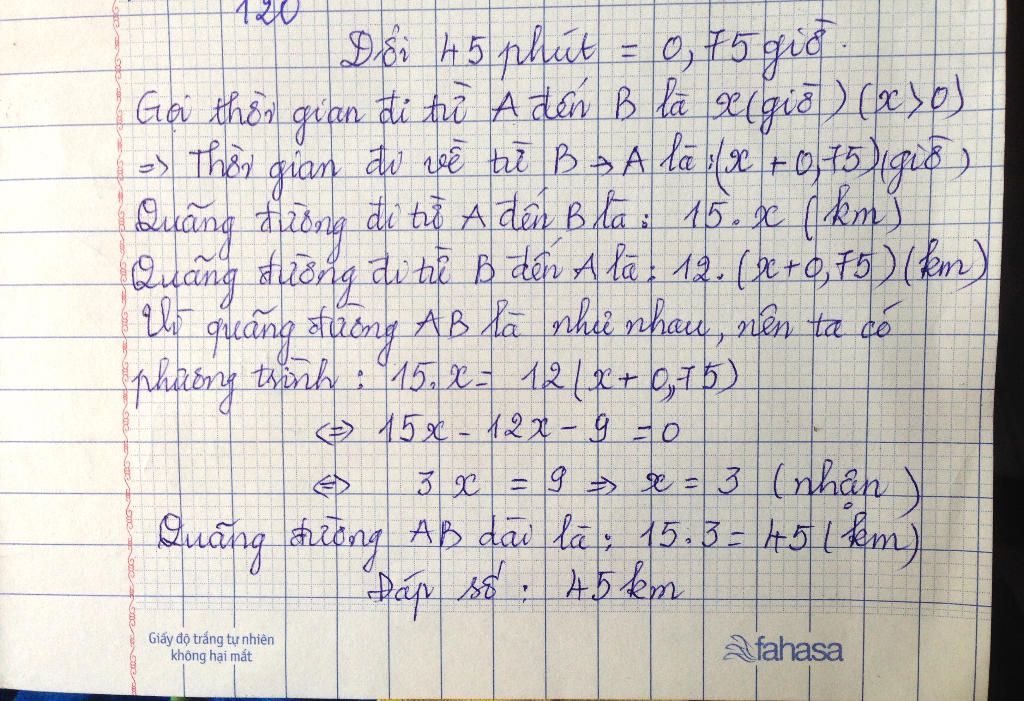 120
Đổi 45 phút = 0,75 giờ.
Gọi thời gian đi từ A đến B là x (giờ) (x>0)
=> Thời gian đi về từ B → A là: (x + 0,75) (giờ)
Quãng đường đi từ A đến B là: 15.x (km)
Quãng đường đi từ B đến A là: 12.(x+0,75) (km)
Vì quãng đường AB là như nhau, nên ta có
phương trình: 15.x = 12(x+0,75)
<=> 15x - 12x - 9 = 0
<=> 3x = 9 => x = 3 (nhận)
Quãng đường AB dài là: 15.3 = 45 (km)
Đáp số: 45 km
Giấy độ trắng tự nhiên
không hại mắt
fahasa